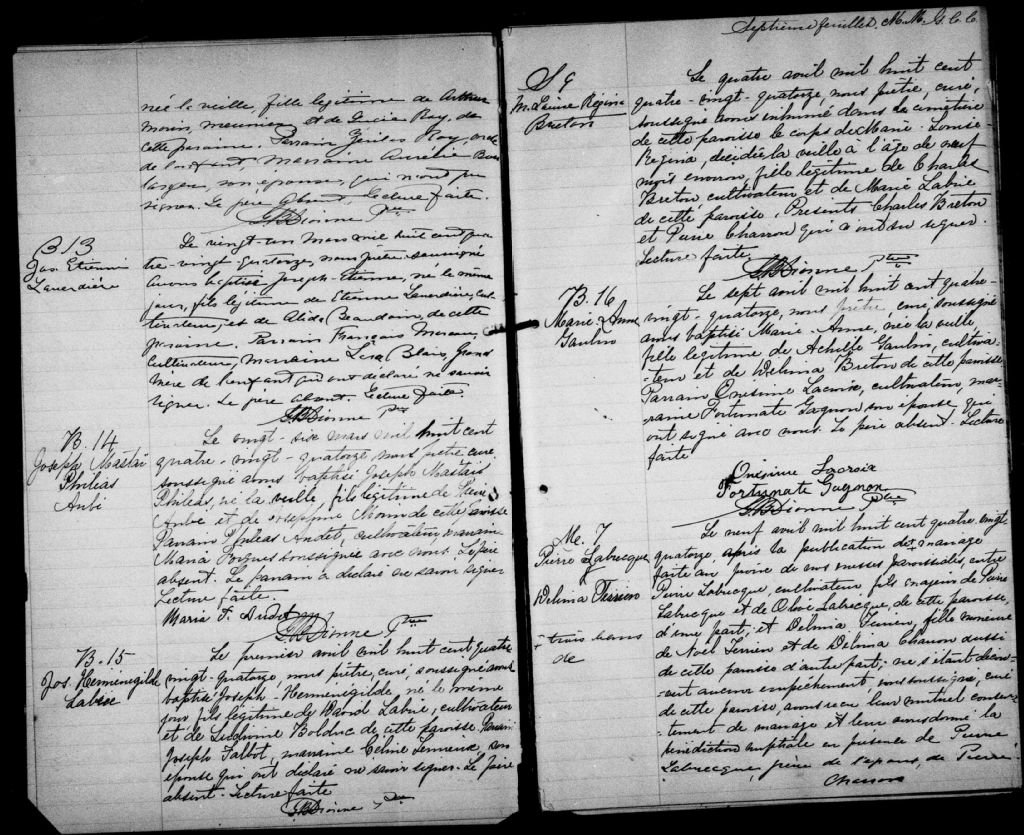 née la veille, fille légitime de Arthur
Morin, meunier et de Lucie Roy, de
cette paroisse. Parrain Roy, oncle
de l'enfant, marraine Aurélie
son épouse, qui n'ont pu
signer. Le père absent. Lecture faite.
Dionne Ptre
B 13
Jos. Etienne
Laverdière
Le vingt un mars mil huit cent qua
tre-vingt quatorze, nous prêtre soussigné
avons baptisé Joseph-Etienne, né le même
jour, fils légitime de Etienne Laverdière, cul
tivateur, et de Alida Beaudoin, de cette
paroisse. Parrain François Moreau,
cultivateur, marraine Blais, Grand
Mère de l'enfant qui ont déclaré ne savoir
signer. Le père absent. Lecture faite.
Dionne Ptre
B. 14
Joseph Mastaï
Philéas
Aubé
Le vingt-six mars mil huit cent
quatre-vingt-quatorze nous prêtre curé
soussigné avons baptisé Joseph Mastaïs
Philéas, né la veille, fils légitime de
Aubé et de Josephine Morin de cette paroisse
Parrain Philéas Audet, cultivateur, marraine
Maria soussignée avec nous. Le père
absent. Le parrain a déclaré ne savoir signer
Lecture faite.
Maria F. Audet
Dionne Ptre
B. 15
Jos. Herménégilde
Labrie
Le premier avril mil huit cent quatre
vingt-quatorze, nous prêtre, curé, soussigné avons
baptisé Joseph-Herménégilde, né le même
jour fils légitime de Labrie, cultivateur
et de Ludivine Bolduc de cette paroisse. Parrain
Joseph Talbot, marraine Céline Lemieux, son
épouse qui ont déclaré ne savoir signer. Le père
absent. Lecture faite
Dionne Ptre
Septième feuillet. M. M. G. C. C.
S 9
M. Louise Régina
Breton
Le quatre avril mil huit cent
quatre-vingt-quatorze, nous prêtre, curé,
soussigné avons inhumé dans le cimetière
de cette paroisse le corps de Marie-Louise
Régina, décédée la veille à l'âge de neuf
mois environ, fille légitime de Charles
Breton, cultivateur et de Marie Labrie
de cette paroisse. Présents Charles Breton
et Pierre Chasson qui n'ont su signer.
Lecture faite
Dionne Ptre
B. 16
Marie-Anne
Gaulin
Le sept avril mil huit cent quatre-
vingt-quatorze, nous prêtre, curé, soussigné
avons baptisé Marie-Anne, née la veille
fille légitime de Achille Gaulin, cultiva-
teur et de Delima Breton de cette paroisse
Parrain Onésime Lacroix, cultivateur, mar-
raine Fortunate Gagnon son épouse, qui
ont signé avec nous. Le père absent. Lecture
faite
Onésime Lacroix
Fortunate Gagnon
Dionne Ptre
Me. 7
Pierre Labrecque
&
Delima Terrien
+ trois bans
de
Le neuf avril mil huit cent quatre-vingt
quatorze après la publication de + mariage
faite au prône de nos messes paroissiales, entre
Pierre Labrecque, cultivateur fils majeur de Pierre
Labrecque et de Olive Labrecque, de cette paroisse,
d'une part; et Delima Terrien, fille mineure
de Noël Terrien et de Delima Chasson aussi
de cette paroisse d'autre part; ne s'étant décou-
vert aucun empêchement nous soussigné, curé
de cette paroisse, avons reçu leur mutuel consen-
tement de mariage et leur avons donné la
bénédiction nuptiale en présence de Pierre
Labrecque, père de l'époux, de Pierre
Chasson